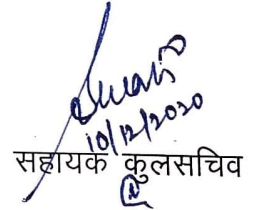 10/12/2020
सहायक कुलसचिव